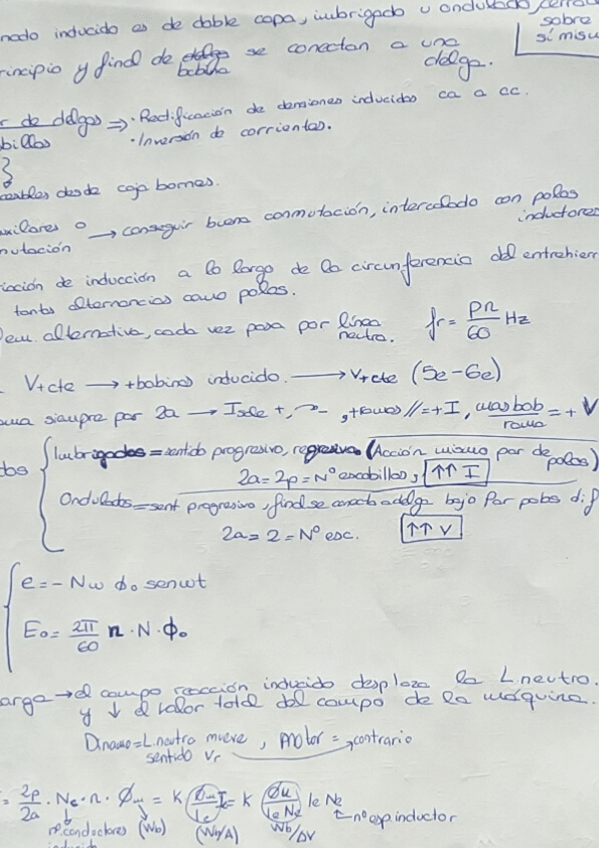 nado inducido es de doble capa, imbrigado u ondulado, cerrado
sobre
sí mism
rincipio y final de bobina se conectan a una
delga.
r de delgas ⇒ · Rectificación de tensiones inducidas ca a cc.
billas · Inversión de corrientes.
esibles desde caja bornes.
uxiliares o
mutación → conseguir buena conmutación, intercalado con polos
inductores
iación de inducción a lo largo de la circunferencia del entrehierr
tantas alternancias como polos.
fem. alternativa, cada vez pasa por línea
neutra.
fr = pn/60 Hz
V+cte → +bobinas inducido. → V+cte (5e-6e)
siempre por 2a → Isale +, +ramas // = +I, mas bob/rama = +V
dos
Imbrigados = sentido progresivo, regresivo. (Acción mismo par de
polos)
2a = 2p = Nº escobillas, ↑↑ I
Ondulados = sent progresivo, final se conecta a delga bajo Par polos dif
2a = 2 = Nº esc. ↑↑ V
e = - Nω ϕ₀ senωt
E₀ = 2π/60 n · N · ϕ₀
arga → el campo reacción inducido desplaza la L.neutra.
y ↓ el valor total del campo de la máquina.
Dinamo = L.neutra mueve, motor = contrario
sentido Vr
= 2p/2a · Nc · n · Øm = K (Øm/Ie) Ie = K (Øm/Ie Ne) Ie Ne
nº conductores (Wb) (Wb/A) Wb/AV nº esp inductor
inducido